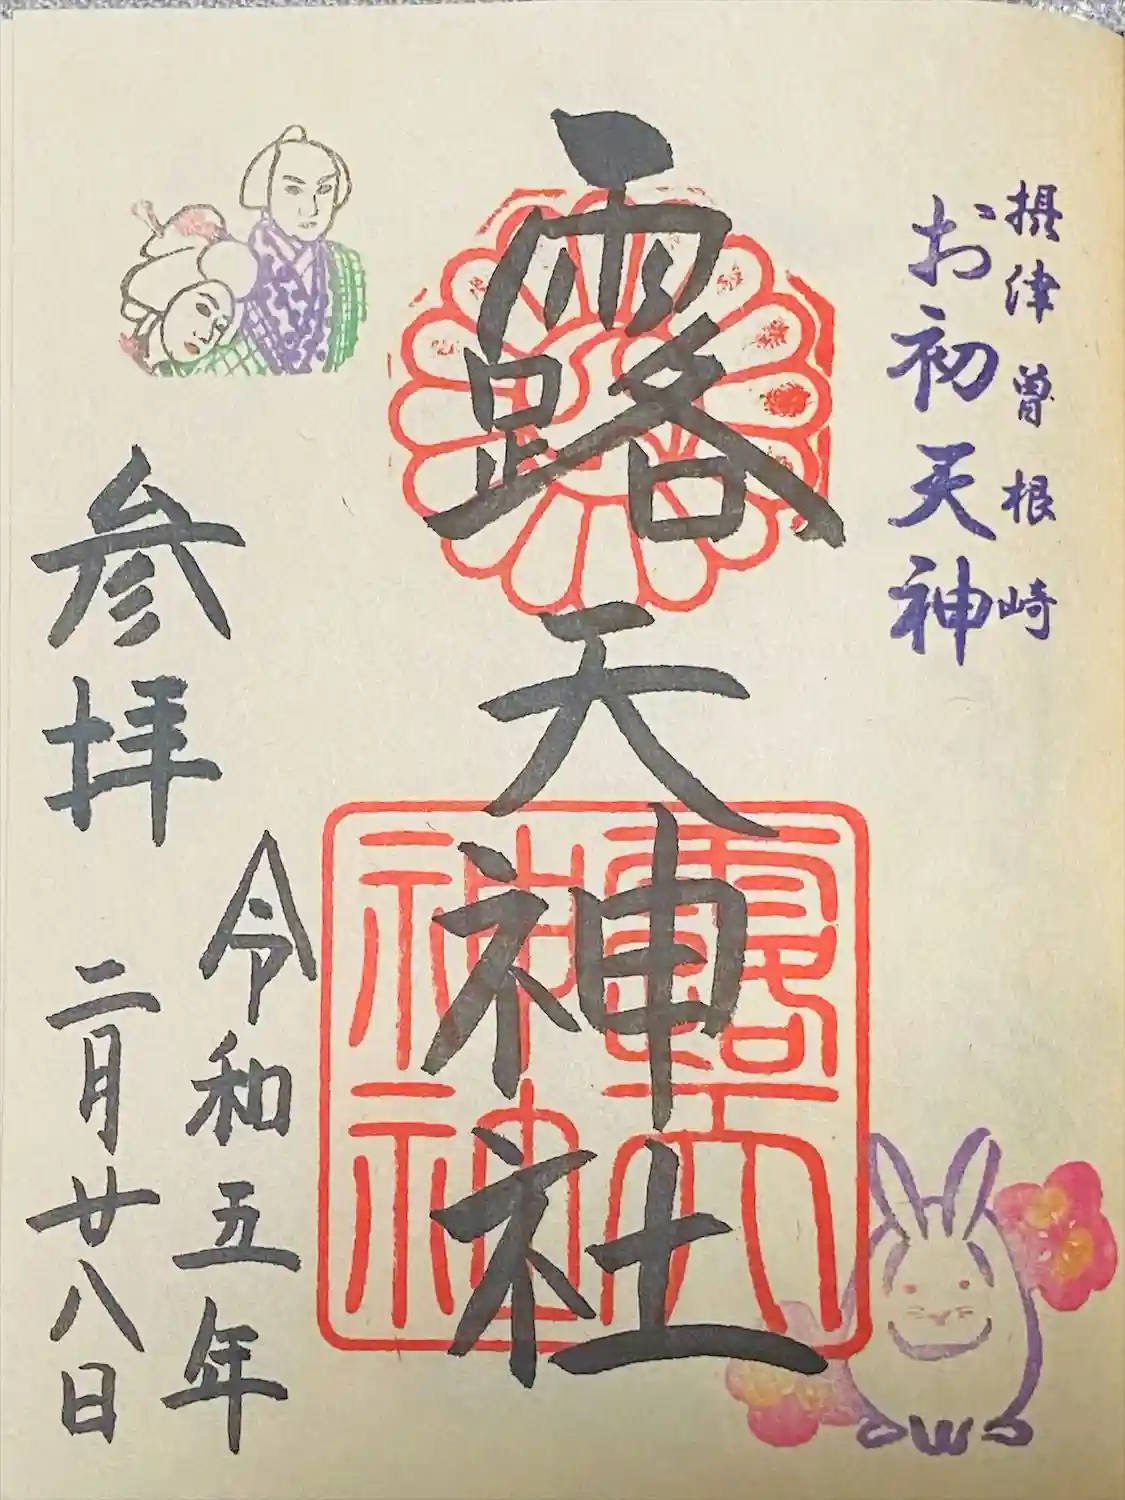 摂津曽根崎
お初天神
露天神社
露天神社
参拝
令和五年
二月廿八日